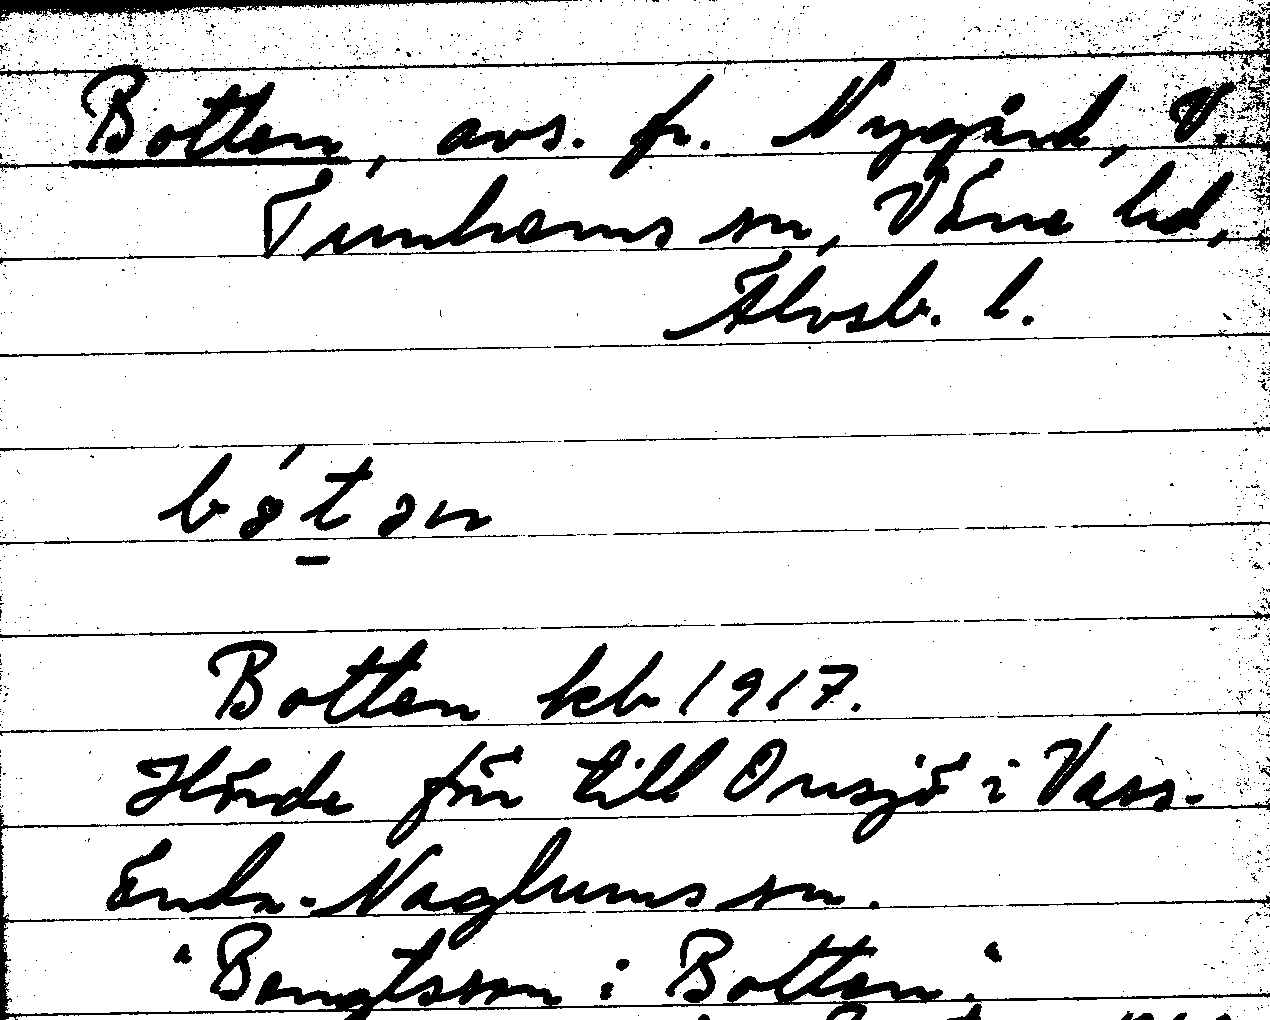 Botten, avs. fr. Nygård, V.
Tunhems sn, Väne hd,
Älvsb. l.
Botten kb 1917.
Hörde för till Onsjö i Vass-
Enda-Naglums sn.
"Bengtsson i Botten."